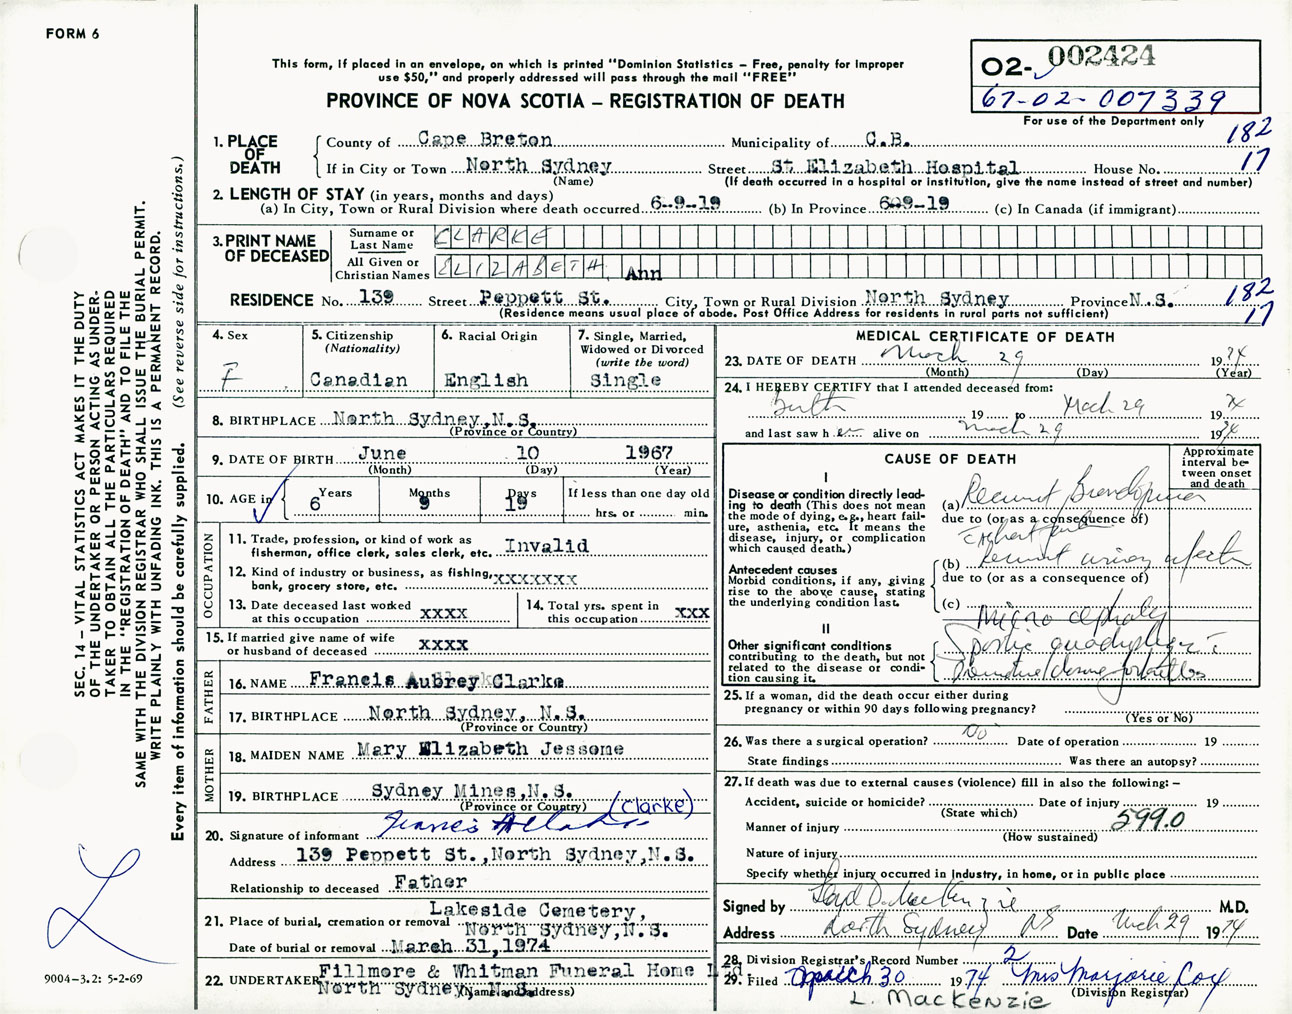 FORM 6
This form, if placed in an envelope, on which is printed "Dominion Statistics – Free, penalty for improper
use $50," and properly addressed will pass through the mail "FREE"
PROVINCE OF NOVA SCOTIA – REGISTRATION OF DEATH
02- 002424
67-02-007339
For use of the Department only
182
17
1. PLACE OF DEATH
County of Cape Breton Municipality of C.B.
If in City or Town North Sydney Street St Elizabeth Hospital House No.
(Name) (If death occurred in a hospital or institution, give the name instead of street and number)
2. LENGTH OF STAY (in years, months and days)
(a) In City, Town or Rural Division where death occurred 6-9-19 (b) In Province 6-9-19 (c) In Canada (if immigrant)
3. PRINT NAME OF DECEASED
Surname or Last Name CLARKE
All Given or Christian Names ELIZABETH Ann
RESIDENCE No. 139 Street Peppett St. City, Town or Rural Division North Sydney Province N.S.
182
17
(Residence means usual place of abode. Post Office Address for residents in rural parts not sufficient)
4. Sex
F
5. Citizenship
(Nationality)
Canadian
6. Racial Origin
English
7. Single, Married,
Widowed or Divorced
(write the word)
Single
8. BIRTHPLACE North Sydney,N.S.
(Province or Country)
9. DATE OF BIRTH June 10 1967
(Month) (Day) (Year)
10. AGE in
Years Months Days If less than one day old
6 9 19 hrs. or min.
OCCUPATION
11. Trade, profession, or kind of work as
fisherman, office clerk, sales clerk, etc. Invalid
12. Kind of industry or business, as fishing, xxxxxxx
bank, grocery store, etc.
13. Date deceased last worked
at this occupation xxxx
14. Total yrs. spent in
this occupation xxx
15. If married give name of wife
or husband of deceased xxxx
FATHER
16. NAME Francis Aubrey Clarke
17. BIRTHPLACE North Sydney, N.S.
(Province or Country)
MOTHER
18. MAIDEN NAME Mary Elizabeth Jessome
19. BIRTHPLACE Sydney Mines,N.S.
(Province or Country) (Clarke)
20. Signature of informant Francis A Clarke
Address 139 Peppett St.,North Sydney,N.S.
Relationship to deceased Father
21. Place of burial, cremation or removal Lakeside Cemetery,
North Sydney,N.S.
Date of burial or removal March 31,1974
22. UNDERTAKER Fillmore & Whitman Funeral Home Ltd.
North Sydney, N.S.
(Name and address)
MEDICAL CERTIFICATE OF DEATH
23. DATE OF DEATH March 29 1974
(Month) (Day) (Year)
24. I HEREBY CERTIFY that I attended deceased from:
Birth 19 to March 29 1974
and last saw her alive on March 29 1974
CAUSE OF DEATH
Approximate
interval be-
tween onset
and death
I
Disease or condition directly lead-
ing to death (This does not mean
the mode of dying, e.g., heart fail-
ure, asthenia, etc. It means the
disease, injury, or complication
which caused death.)
(a) Recurrent
due to (or as a consequence of)
Antecedent causes
Morbid conditions, if any, giving
rise to the above cause, stating
the underlying condition last.
(b) Recurrent urinary infection
due to (or as a consequence of)
(c)
Microcephaly
II
Other significant conditions
contributing to the death, but not
related to the disease or condi-
tion causing it.
Spastic quadriplegia
25. If a woman, did the death occur either during
pregnancy or within 90 days following pregnancy?
(Yes or No)
26. Was there a surgical operation? No Date of operation 19
State findings Was there an autopsy?
27. If death was due to external causes (violence) fill in also the following: –
Accident, suicide or homicide? Date of injury 19
(State which)
599.0
Manner of injury
(How sustained)
Nature of injury
Specify whether injury occurred in industry, in home, or in public place
Signed by Lloyd D. MacKenzie M.D.
Address North Sydney NS Date March 29 1974
28. Division Registrar's Record Number 2
29. Filed March 30 1974 Mrs Marjorie Cox
(Division Registrar)
L. MacKENZIE
SEC. 14 – VITAL STATISTICS ACT MAKES IT THE DUTY
OF THE UNDERTAKER OR PERSON ACTING AS UNDER-
TAKER TO OBTAIN ALL THE PARTICULARS REQUIRED
IN THE "REGISTRATION OF DEATH" AND TO FILE THE
SAME WITH THE DIVISION REGISTRAR WHO SHALL ISSUE THE BURIAL PERMIT.
WRITE PLAINLY WITH UNFADING INK. THIS IS A PERMANENT RECORD.
Every item of information should be carefully supplied. (See reverse side for instructions.)
9004–3.2: 5-2-69